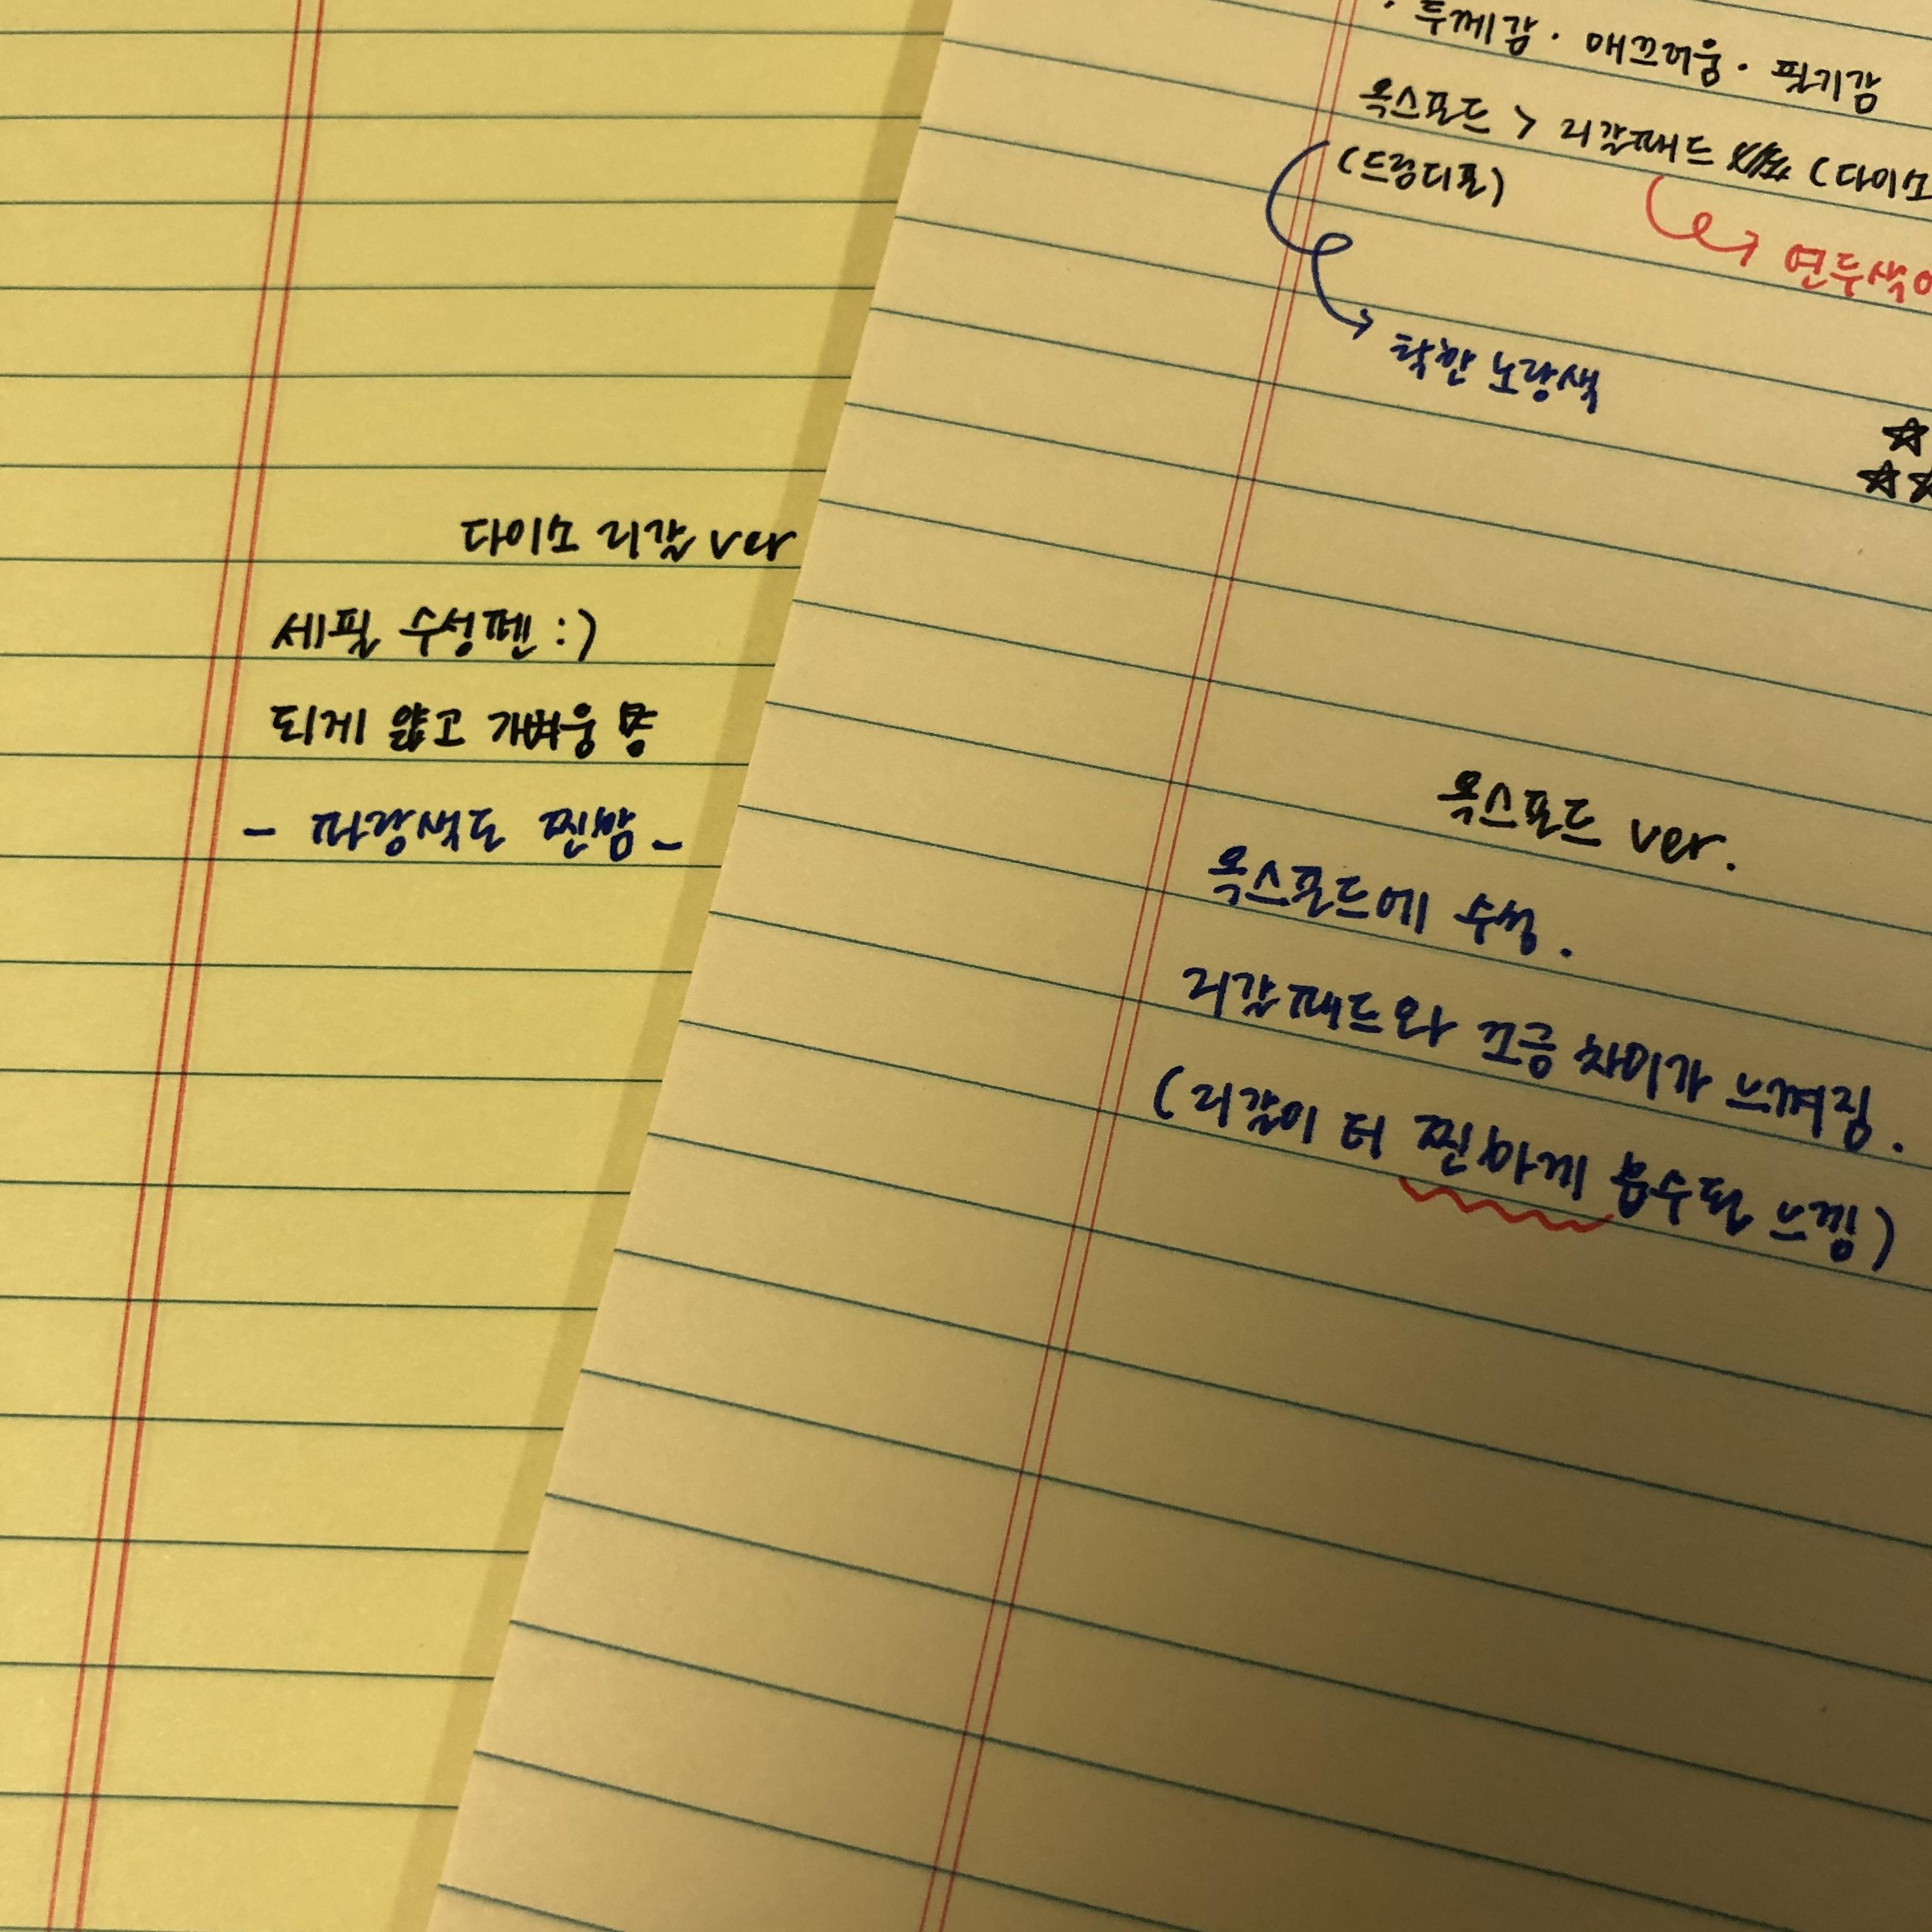 다이소 리갈 ver
세필 수성펜 :)
되게 얇고 가벼움
- 파랑색도 찐함 -
· 두께감 · 매끄러움 · 필기감
옥스포드 > 리갈패드 (다이소
(드링디포)
연두색
탁한 노랑색
옥스포드 ver.
옥스포드에 수성.
리갈패드와 조금 차이가 느껴짐.
(리갈이 더 찐하게 흡수된 느낌)